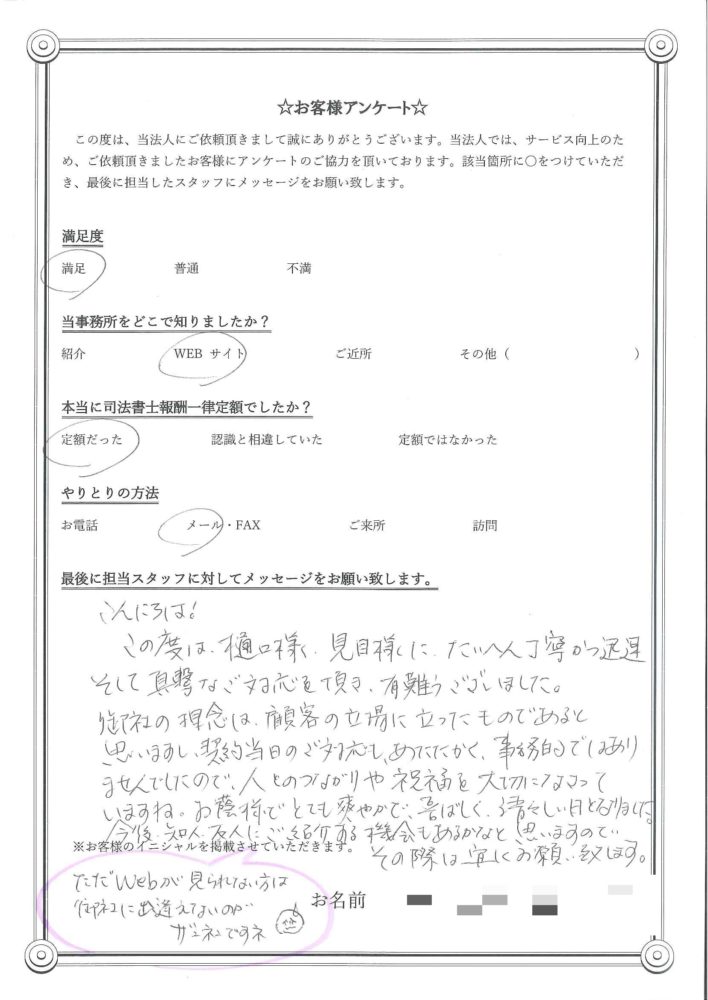 ☆お客様アンケート☆
この度は、当法人にご依頼頂きまして誠にありがとうございます。当法人では、サービス向上のた
め、ご依頼頂きましたお客様にアンケートのご協力を頂いております。該当箇所に〇をつけていただ
き、最後に担当したスタッフにメッセージをお願い致します。
満足度
満足 普通 不満
当事務所をどこで知りましたか？
紹介 WEB サイト ご近所 その他（ ）
本当に司法書士報酬一律定額でしたか？
定額だった 認識と相違していた 定額ではなかった
やりとりの方法
お電話 メール・FAX ご来所 訪問
最後に担当スタッフに対してメッセージをお願い致します。
こんにちは!
この度は、樋口様、見目様に、たいへん丁寧かつ迅速
そして真摯なご対応を頂き、有難うございました。
御社の理念は、顧客の立場に立ったものであると
思いますし、契約当日のご対応も、あたたかく、事務的ではあり
ませんでしたので、人とのつながりや祝福を大切になさって
いますね。お蔭様でとても爽やかで、喜ばしく、清々しい日となりました。
今後、知人、友人にご紹介する機会もあるかなと思いますので
※お客様のイニシャルを掲載させていただきます。
その際は宜しくお願い致します。
ただWebが見られない方は
御社に出逢えないのが
ザンネンですネ
お名前